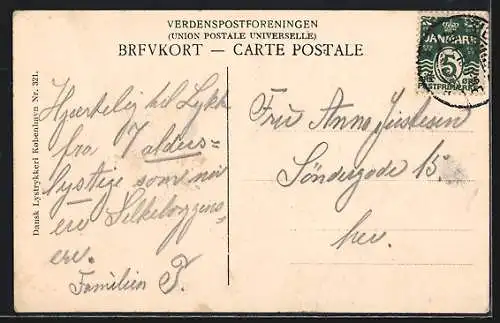 VERDENSPOSTFORENINGEN
(UNION POSTALE UNIVERSELLE)
BREVKORT — CARTE POSTALE
DANMARK
5
POSTFRIMÆRKE
Dansk Lystrykkeri København Nr. 321.
Hjærtelig til Lykke
fra 7 alders-
lystige som
ere Silkeboggens-
ere.
Familien P.
Fru Anna Justesen
Söndergade 15.
her.